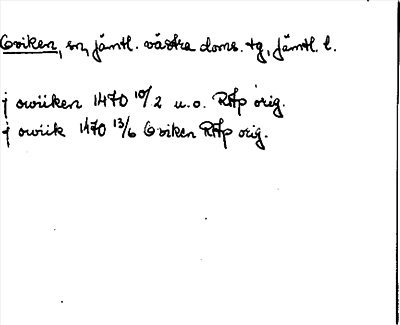 Oviken, sn, jämtl. västra doms. tg, Jämtl. l.
j owiiken 1470 10/2 u.o. RAp orig.
j owiik 1470 13/6 Oviken RAp orig.